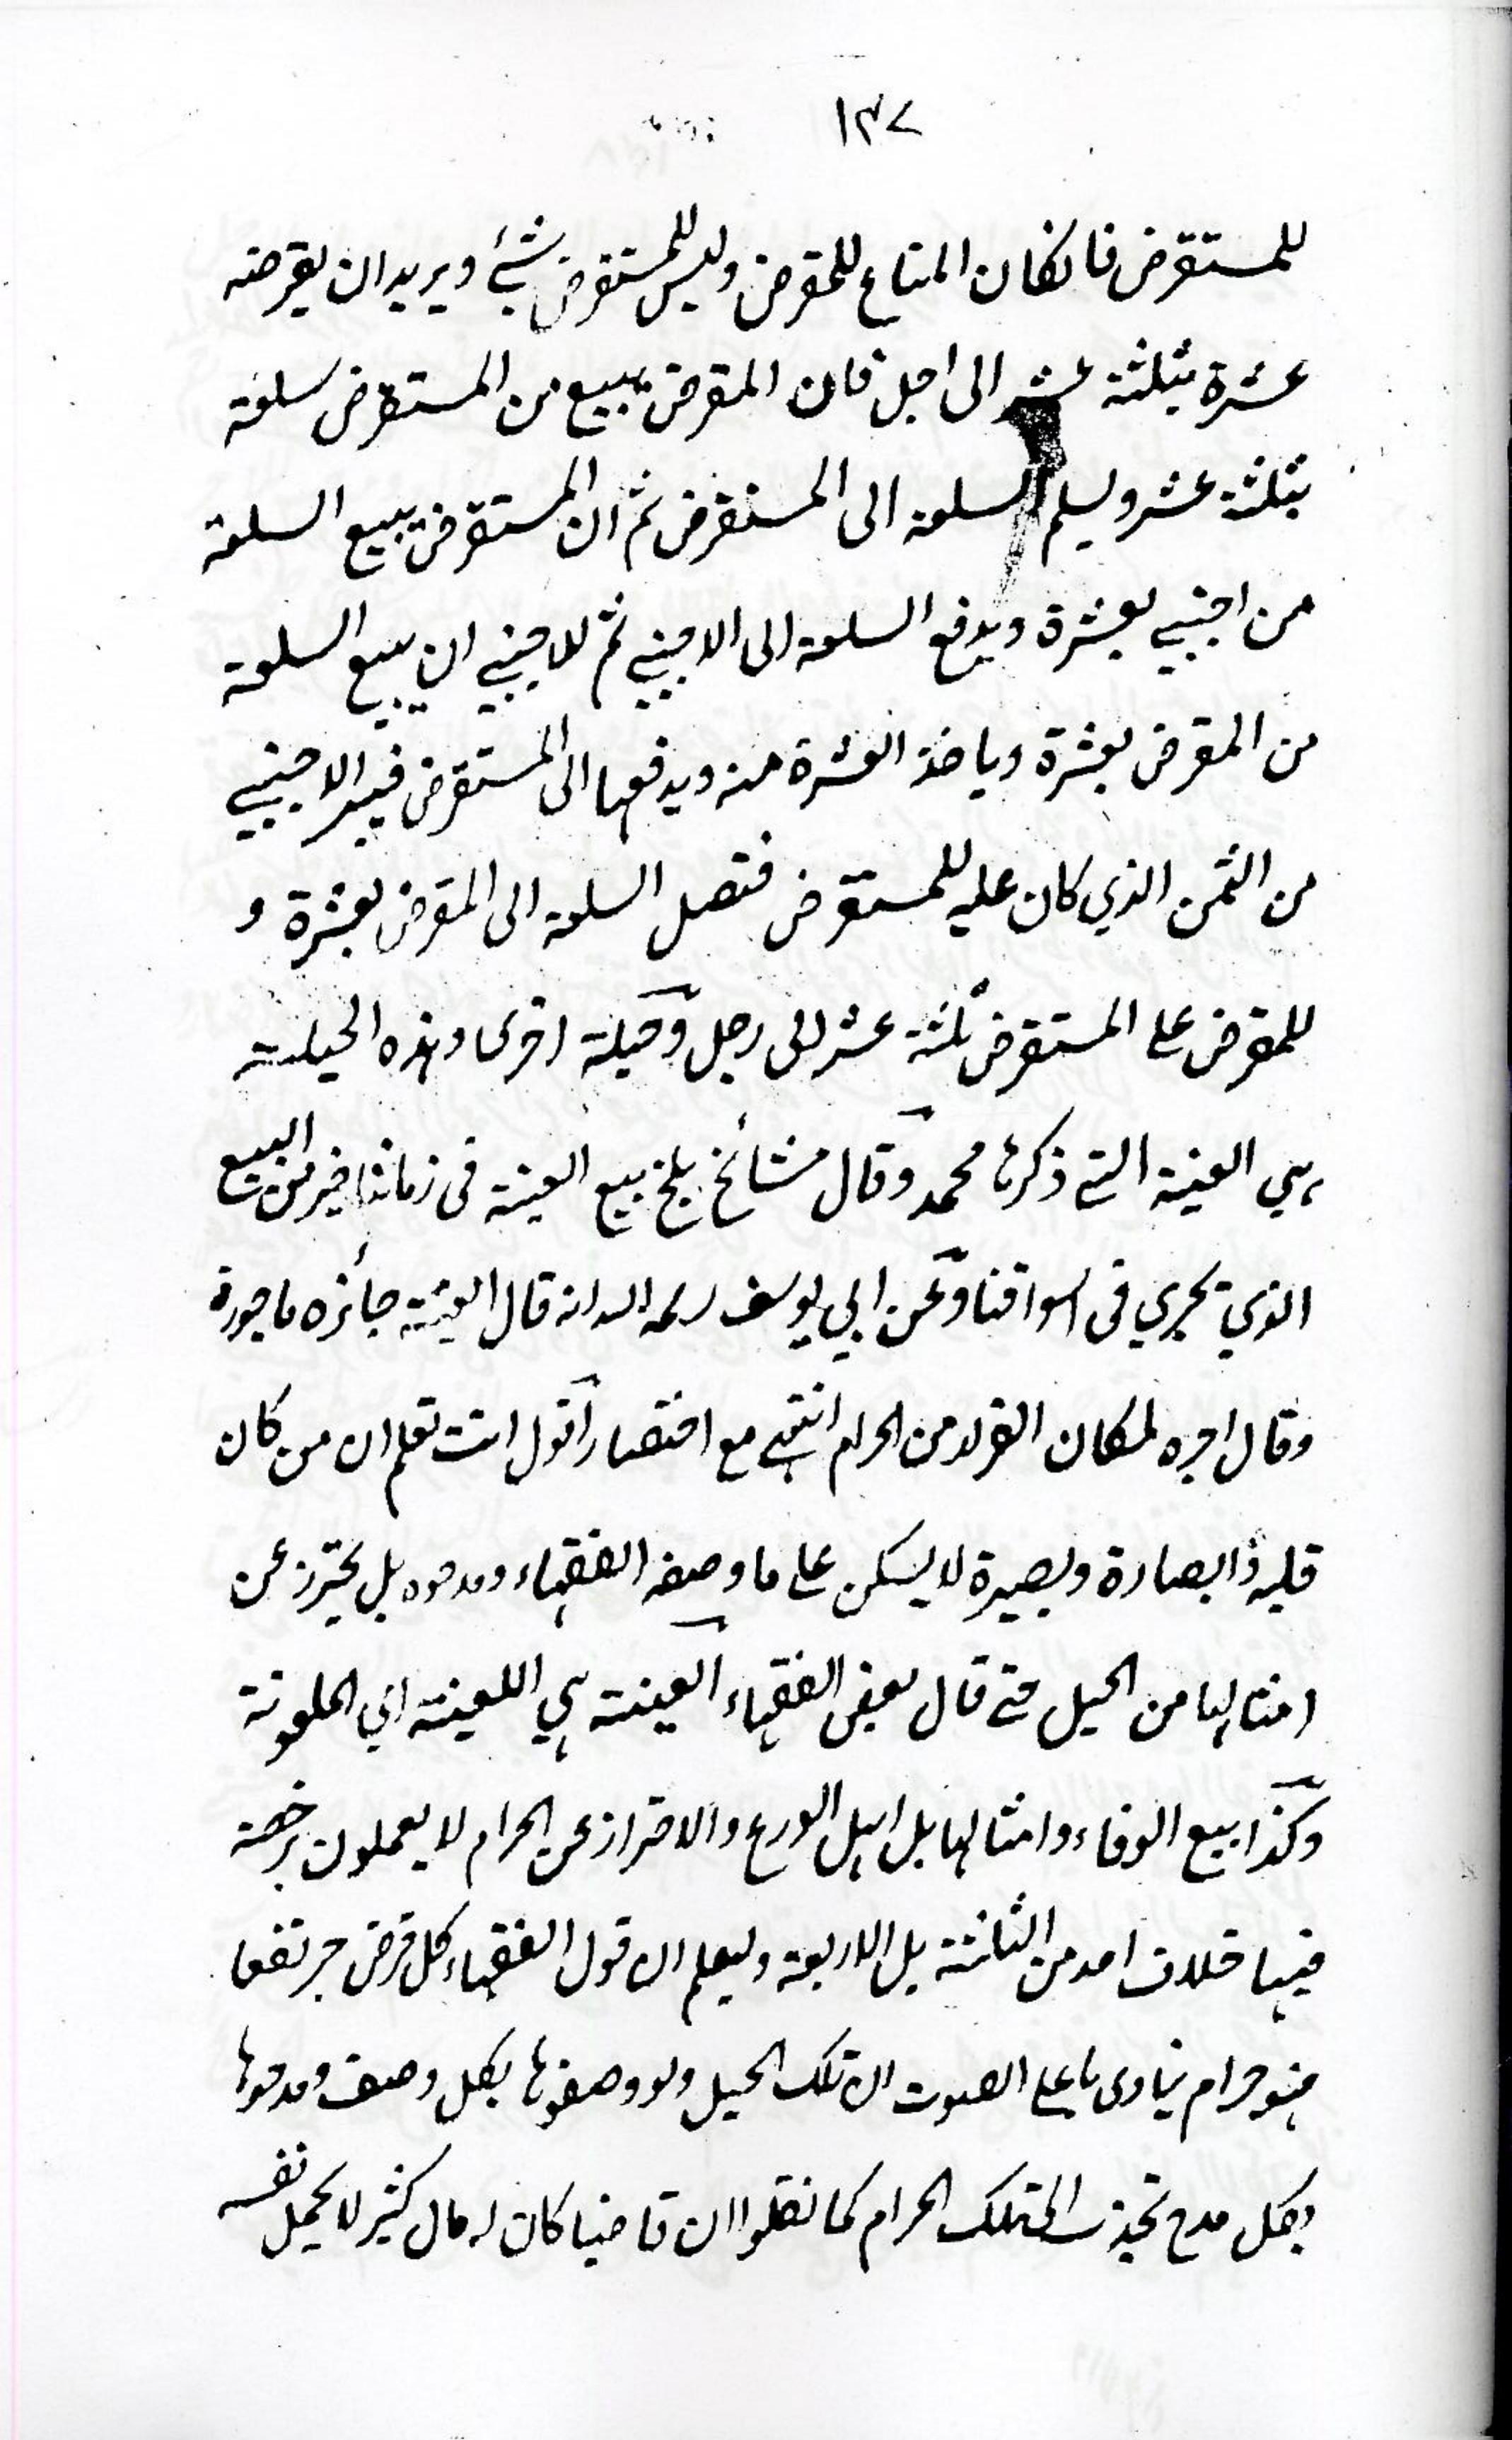 ١٣٧
للمستقرض فانكان المتاع للمقرض وليس للمستقرض شئ ويريد ان يقرضه
عشرة بثلثة عشر الى اجل فان المقرض يبيع من المستقرض سلعة
بثلثة عشر ويسلم السلعة الى المستقرض ثم ان المستقرض يبيع السلعة
من اجنبي بعشرة ويدفع السلعة الى الاجنبي ثم للاجنبي ان يبيع السلعة
من المقرض بعشرة وياخذ العشرة منه ويدفعها الى المستقرض فيبر الاجنبي
من الثمن الذي كان عليه للمستقرض فتصل السلعة الى المقرض بعشرة و
للمقرض على المستقرض ثلثة عشر الى رجل وحيلة اخرى وهذه الحيلة
هي العينة التي ذكرها محمد وقال مشائخ بلخ بيع العينة فى زماننا خير من البيع
الذي تجري فى اسواقنا وعن ابي يوسف رحمه الله انه قال العينة جائزه ماجورة
وقال اجره لمكان الفرار من الحرام انتهى مع اختصار اقول انت تعلم ان من كان
قلبه ذا بصارة وبصيرة لا يسكن على ما وصفه الفقهاء ومدحوه بل يحترز عن
امثالها من الحيل حتى قال بعض الفقهاء العينة هي اللعينة اي الملعونة
وكذا بيع الوفاء وامثالها بل اهل الورع والاحتراز عن الحرام لا يعملون برخصة
فيها خلاف احد من الثلثة بل الاربعة وليعلم ان قول الفقهاء كل قرض جر نفعا
فهو حرام ينادى باعلى الصوت ان تلك الحيل ولو وصفوها بكل وصف ومدحوها
بكل مدح تجذب الى تلك الحرام كما نقلوا ان قاضيا كان له مال كثير لا يحمل نفسه